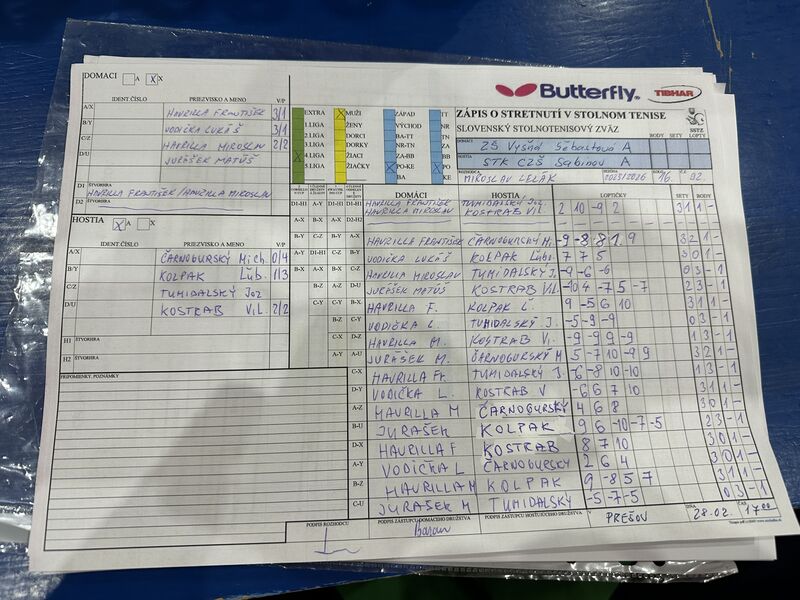 DOMACI A X
IDENT.ČÍSLO PRIEZVISKO A MENO V/P
A/X HAVRILLA FRANTIŠEK 3/1
B/Y VODIČKA LUKÁŠ 3/1
C/Z HAVRILLA MIROSLAV 2/2
D/U JURÁŠEK MATÚŠ
D1 ŠTVORHRA HAVRILLA FRANTIŠEK/HAVRILLA MIROSLAV
D2 ŠTVORHRA
HOSTIA A X
IDENT.ČÍSLO PRIEZVISKO A MENO V/P
A/X ČARNOGURSKÝ Mich. 0/4
B/Y KOLPAK Ľub. 1/3
C/Z TUMIDALSKÝ Joz
D/U KOSTRAB Vil. 2/2
H1 ŠTVORHRA
H2 ŠTVORHRA
PRIPOMIENKY, POZNÁMKY
Butterfly TIBHAR
EXTRA X MUŽI ZÁPAD TT
1.LIGA ŽENY VÝCHOD NR
2.LIGA DORCI BA-TT TN
3.LIGA DORKY NR-TN ZA
X 4.LIGA ŽIACI ZA-BB BB
5.LIGA ŽIAČKY X PO-KE PO
BA KE
ZÁPIS O STRETNUTÍ V STOLNOM TENISE
SLOVENSKÝ STOLNOTENISOVÝ ZVÄZ
SSTZ
BODY SETY LOPT.
DOMÁCI ZŠ Vyšná Šebastová A
HOSTIA STK CZŠ Sabinov A
ROZHODCA MIROSLAV LELÁK 2025/2026 16 92.
DOMÁCI HOSTIA LOPTIČKY SETY BODY
D1-H1 HAVRILLA FRANTIŠEK HAVRILLA MIROSLAV TUMIDALSKÝ Joz KOSTRAB Vil. 2 10 -9 2 3 1 1 -
A-X HAVRILLA FRANTIŠEK ČARNOGURSKÝ M. -9 -8 8 1 9 3 2 1 -
B-Y VODIČKA LUKÁŠ KOLPAK Ľub. 7 7 5 3 0 1 -
C-Z HAVRILLA MIROSLAV TUMIDALSKÝ J. -9 -6 -6 0 3 - 1
D-U JURÁŠEK MATÚŠ KOSTRAB Vil. -10 4 -7 5 -7 2 3 - 1
HAVRILLA F. KOLPAK Ľ. 9 -5 6 10 3 1 1 -
VODIČKA L. TUMIDALSKÝ J. -5 -9 -9 0 3 - 1
HAVRILLA M. KOSTRAB V. -9 -9 9 -9 1 3 - 1
A-U JURÁŠEK M. ČARNOGURSKÝ M 5 -7 10 -9 9 3 2 1 -
C-X HAVRILLA Fr. TUMIDALSKÝ J. -6 -8 10 -10 1 3 - 1
D-Y VODIČKA L. KOSTRAB V -6 6 7 10 3 1 1 -
A-Z HAVRILLA M ČARNOGURSKÝ 4 6 8 3 0 1 -
B-U JURAŠEK KOLPAK 9 6 -10 -7 -5 2 3 - 1
D-X HAVRILLA F KOSTRAB 8 7 10 3 0 1 -
A-Y VODIČKA L ČARNOGURSKY 2 6 4 3 0 1 -
B-Z HAVRILLA M KOLPAK 9 -8 5 7 3 1 1 -
C-U JURAŠEK M TUMIDALSKÝ -5 -7 -5 0 3 - 1
PODPIS ROZHODCU PODPIS ZÁSTUPCU DOMACEHO DRUŽSTVA PODPIS ZÁSTUPCU HOSŤUJÚCEHO DRUŽSTVA V PREŠOV DŇA 28.02. ČAS 17 00